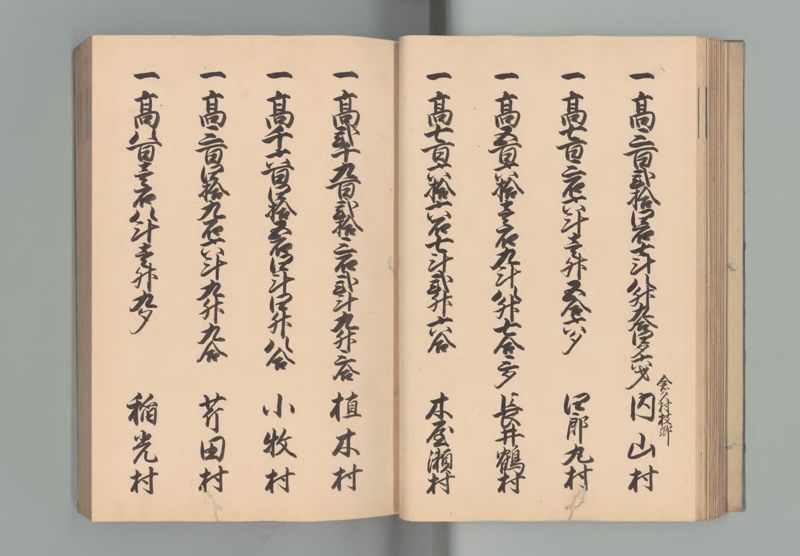 一高三百弐拾四石七斗八升九合四夕六才 内山村
村枝郷
一高七百三石六斗壱升五合六夕 四郎丸村
一高五百六拾壱石九斗八升七合三夕 長井鶴村
一高七百六拾六石七斗弐升六合 木屋瀬村
一高弐千九百弐拾三石弐斗九升三合 植木村
一高千六百四拾五石四斗四升八合 小牧村
一高三百四拾九石六斗九升九合 芹田村
一高八百壱石八斗壱升九夕 稲光村